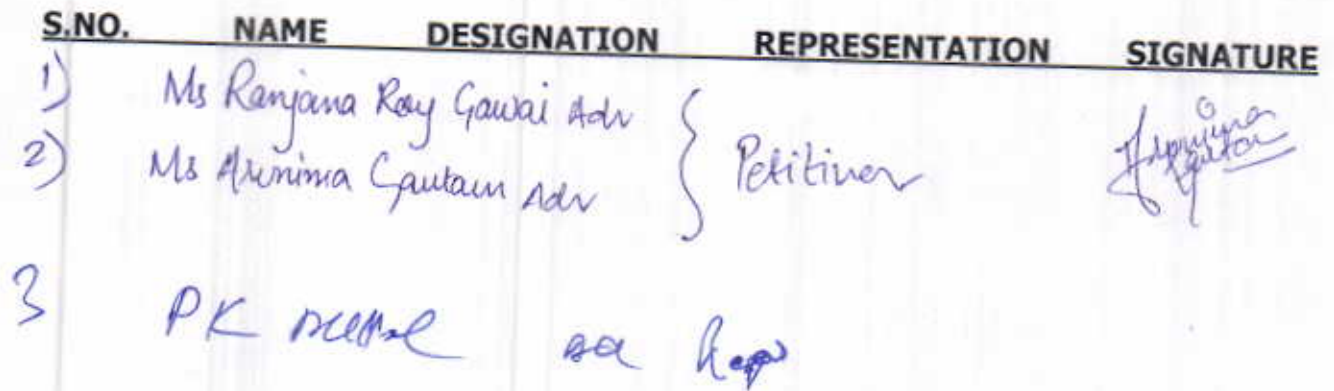 S.NO. NAME DESIGNATION REPRESENTATION SIGNATURE
1) Ms Ranjana Roy Gawai Adv
2) Ms Arunima Gautam Adv } Petitiner
Arunima Gautam
3 PK